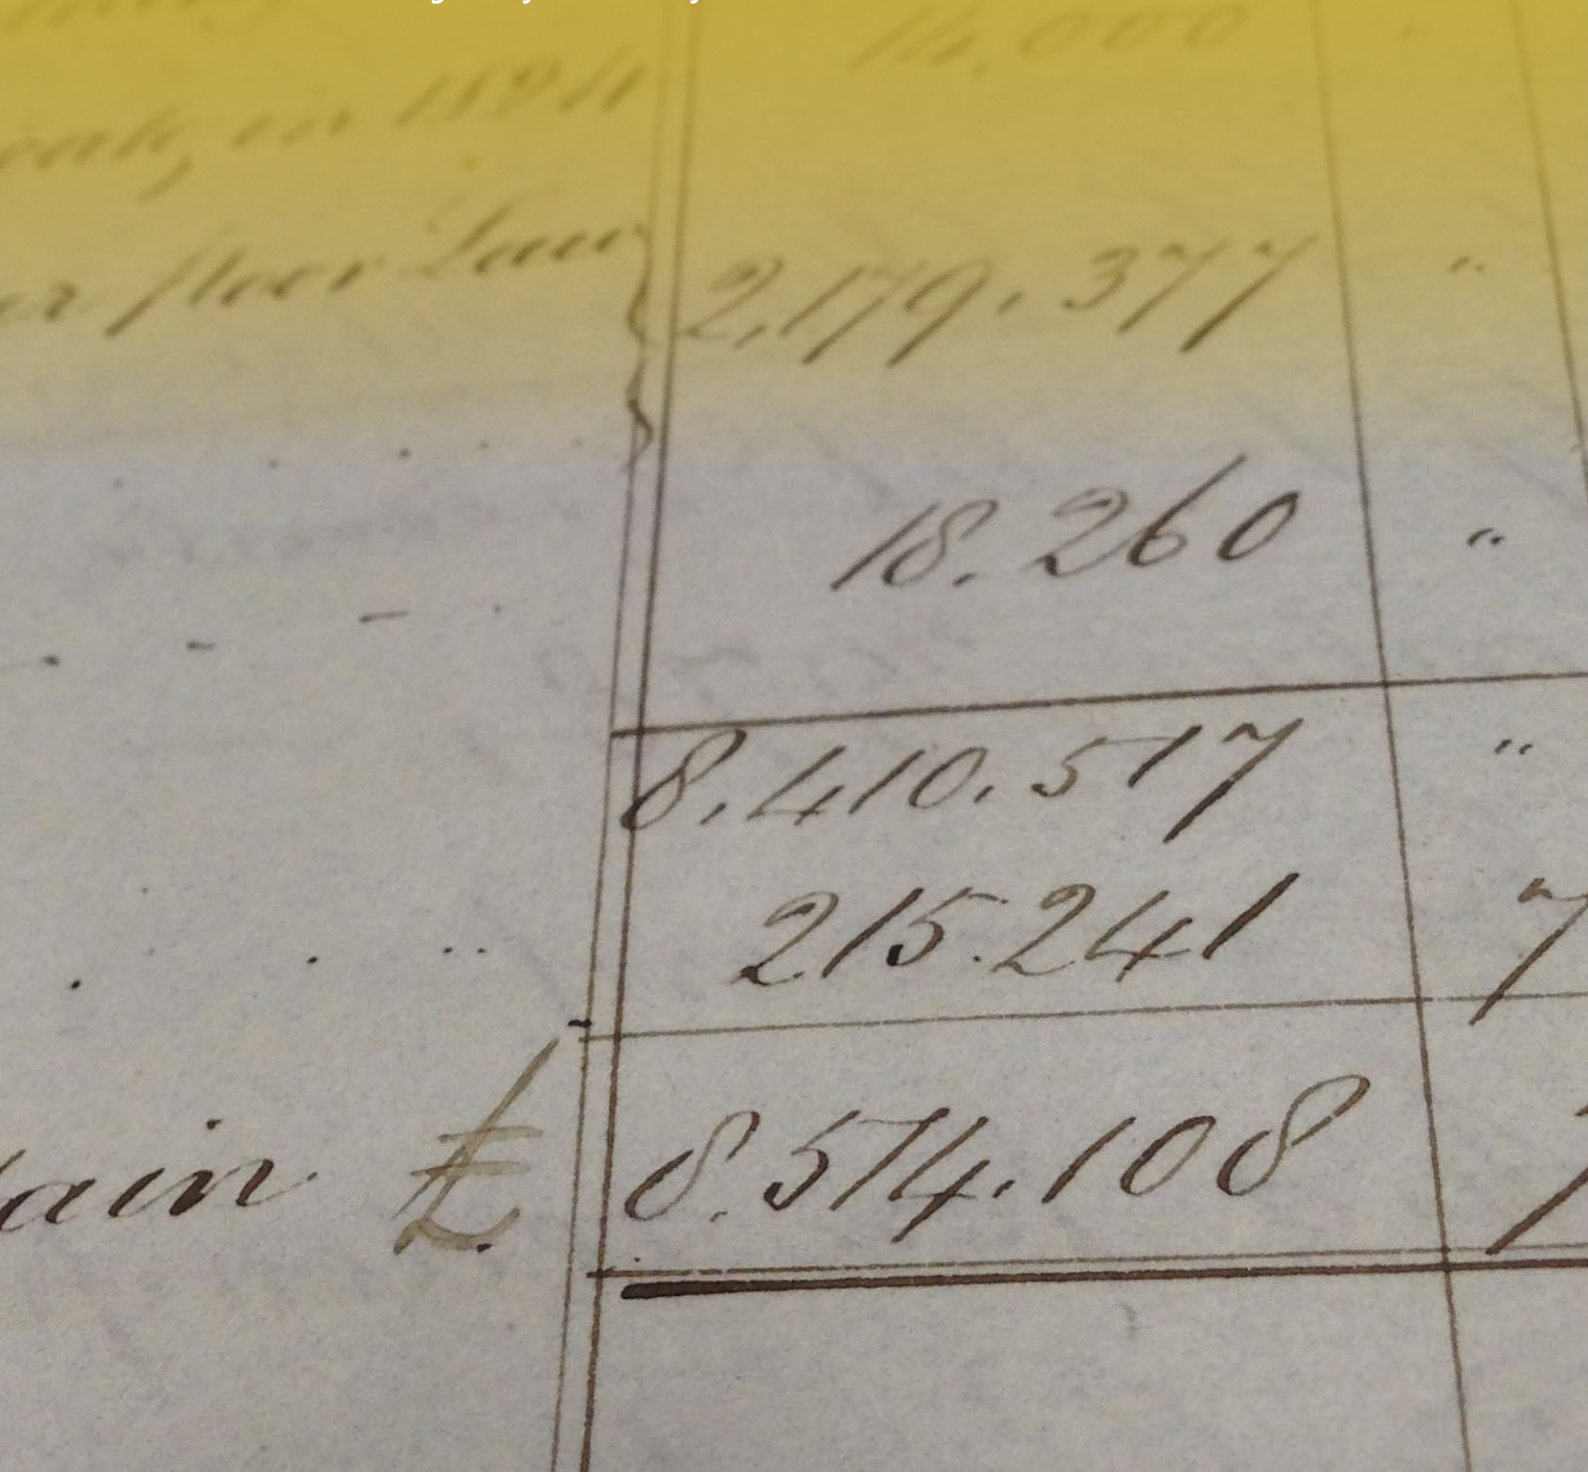 14,000
in 1824
Poor Law 2,179,377 "
18.260 "
8,410,517 "
215.241 7
tain £ 8.574.108 7